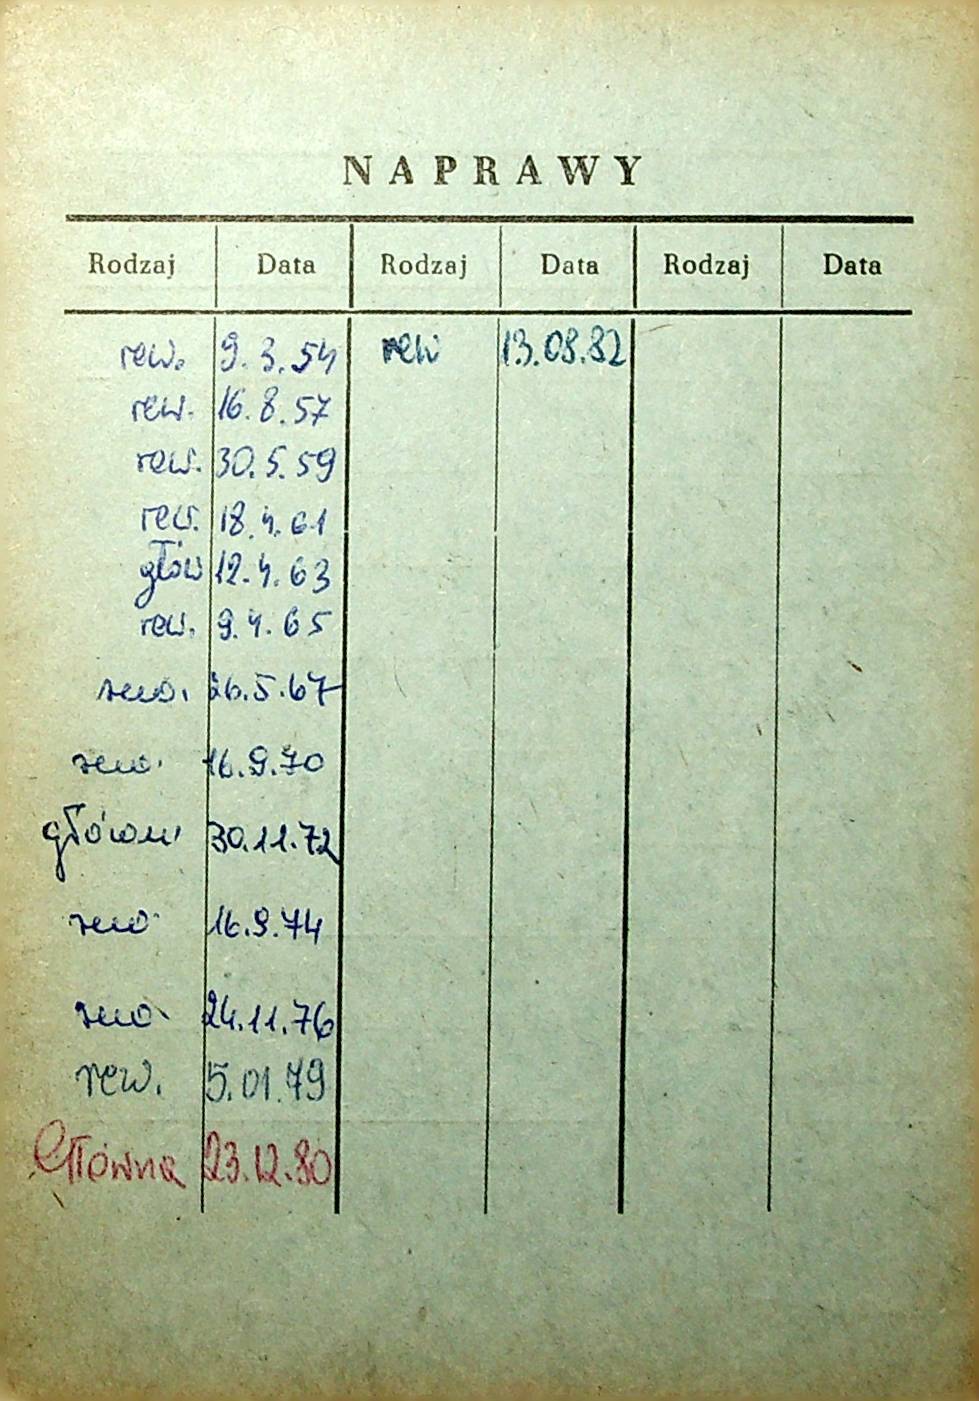 NAPRAWY
Rodzaj Data Rodzaj Data Rodzaj Data
rew. 9.3.54 rew 13.08.82
rew. 16.8.57
rew. 30.5.59
rew. 18.4.61
głów 12.4.63
rew. 9.4.65
rew. 26.5.67
rew. 16.9.70
główn 30.11.72
rew 16.9.74
rew. 24.11.76
rew. 5.01.79
Główna 23.12.80